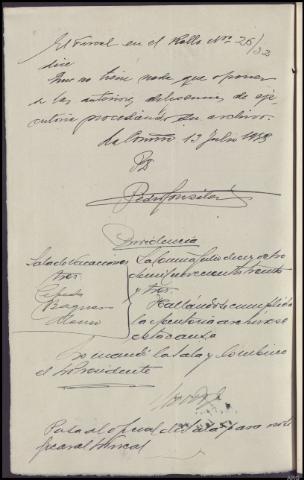 El Fiscal en el Rollo Nº 26/33
dice
Que no tiene nada que oponer
a las anteriores diligencias de eje-
cutoria procediendo su archivo.
La Coruña 13 Julio 1933
Pedro González
Providencia
Sala de Vacaciones
La Coruña Julio diez y ocho
de mil novecientos treinta
y tres
Hallándose cumplida
la ejecutoria archívese
esta causa
Lo mandó la Sala y rubrica
el Sr Presidente
Pasa al oficial de Sala para noti-
ficar al Fiscal